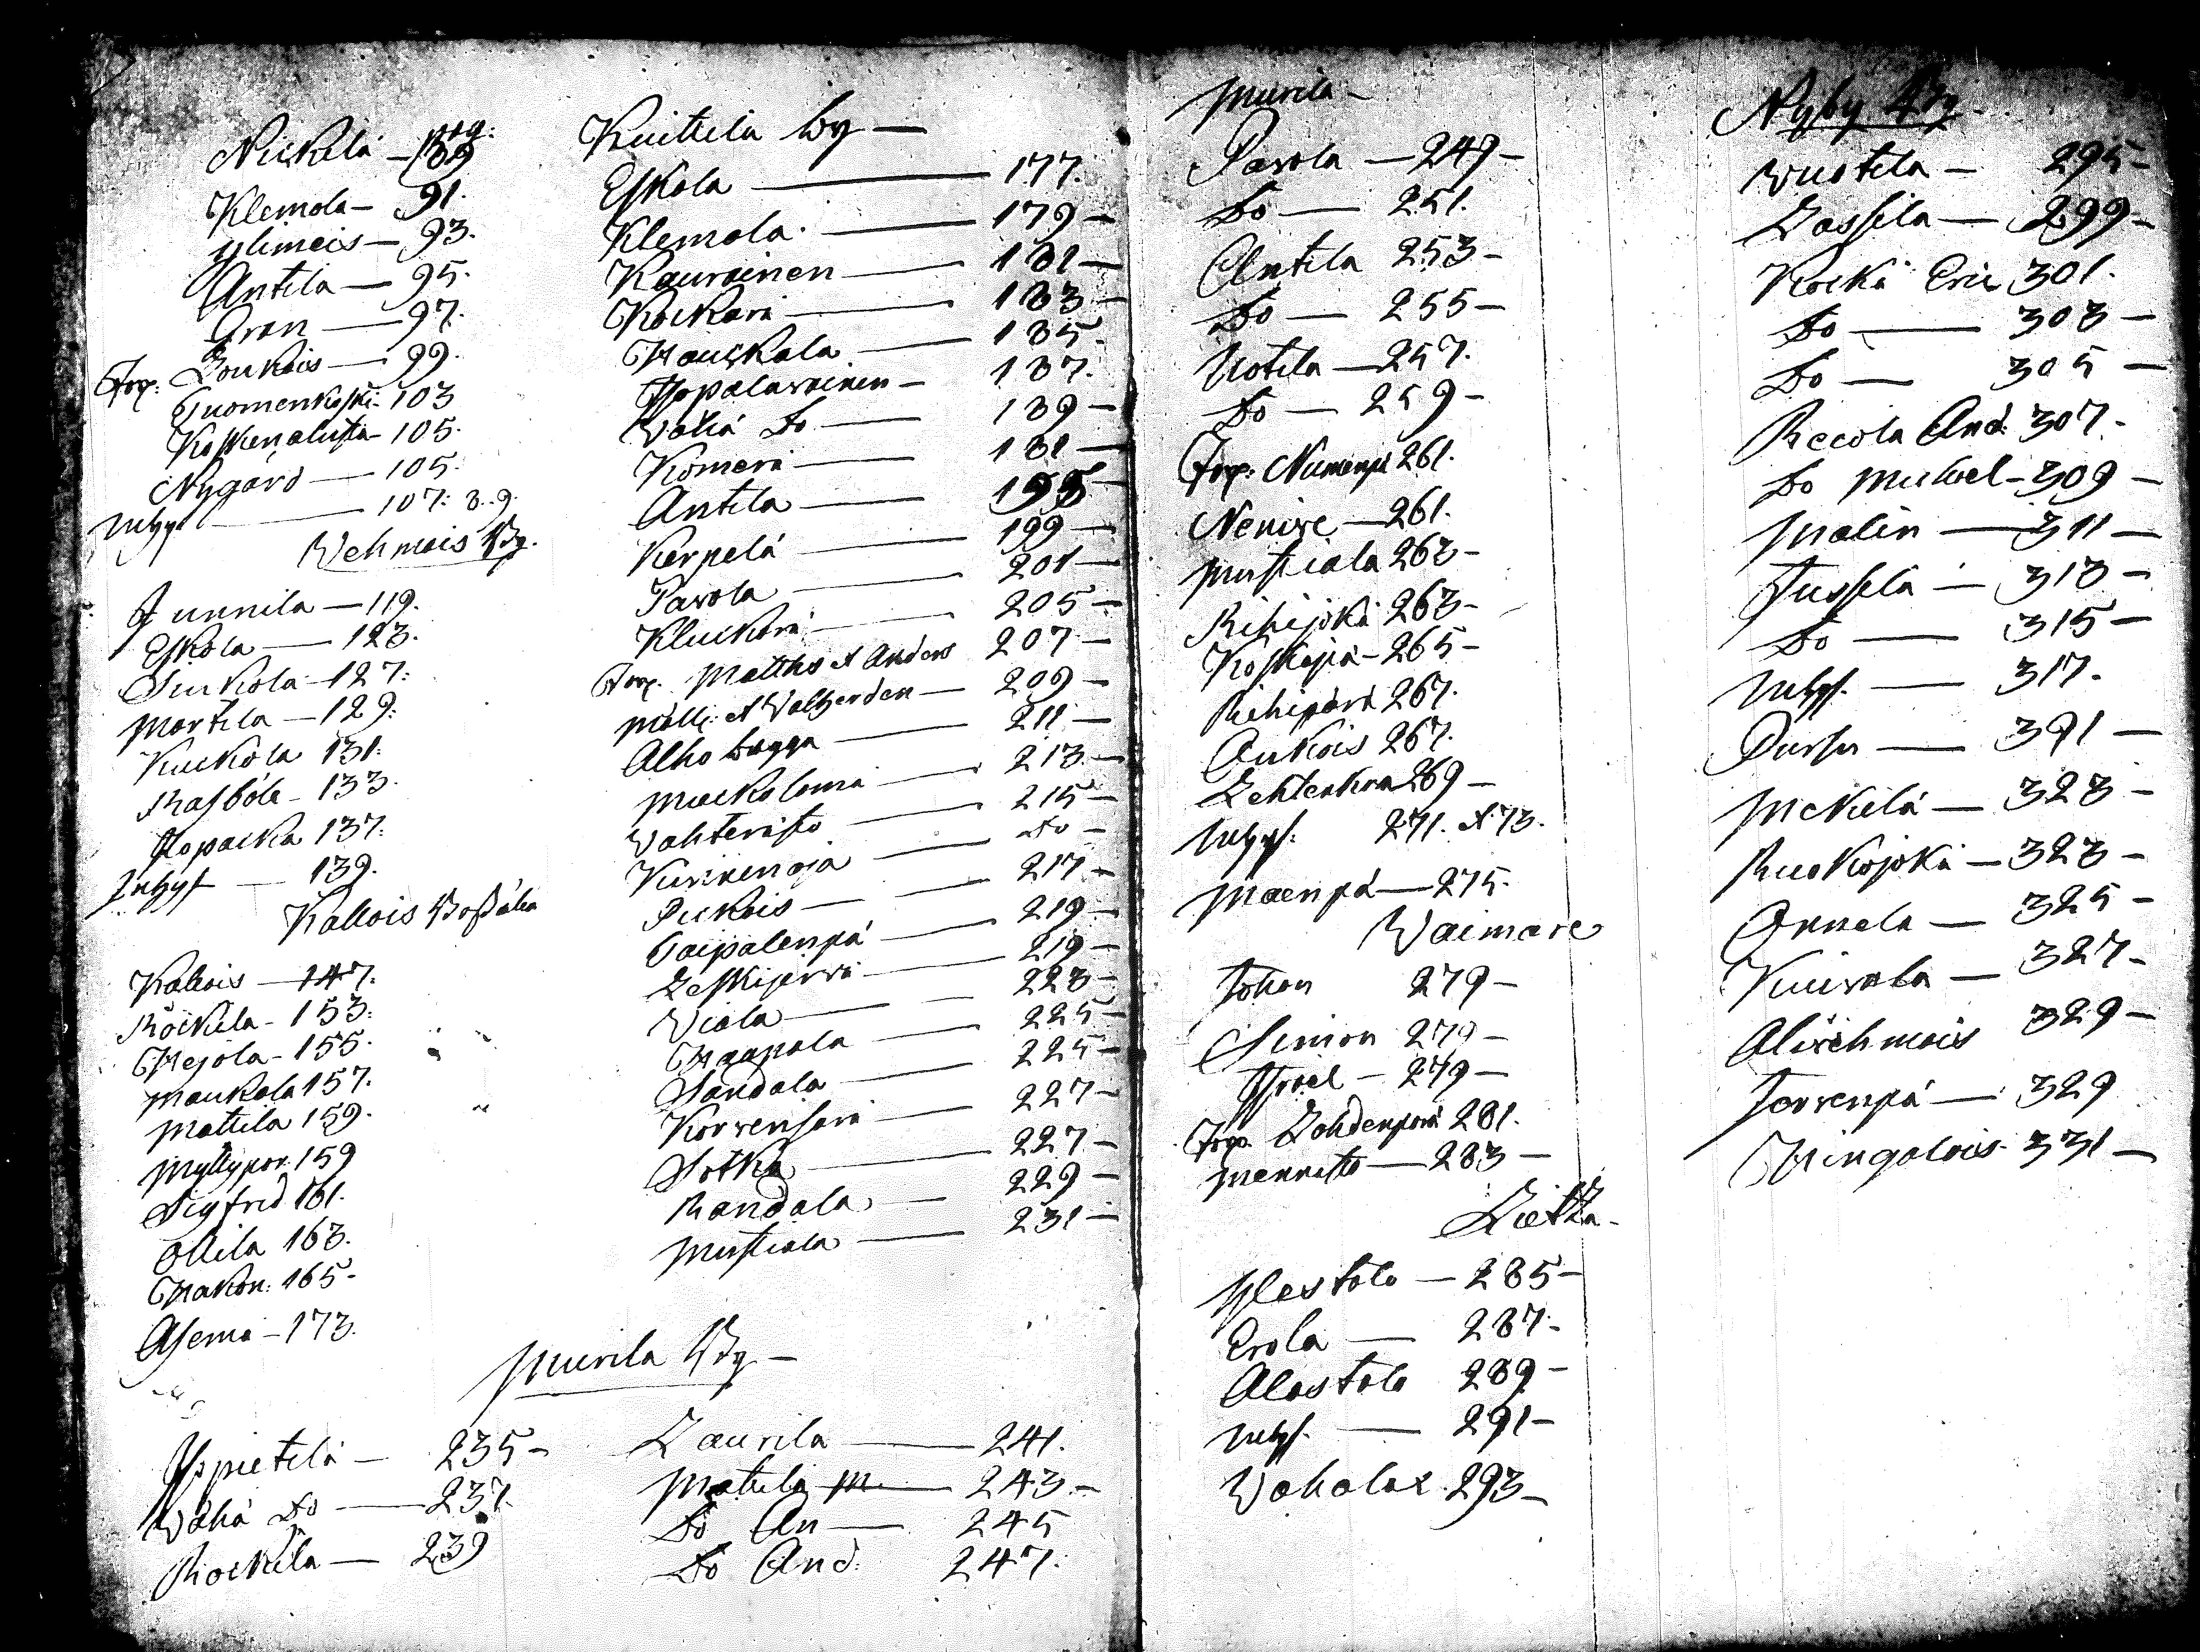 pag:
Nickilä — 89
Klemola — 91.
Ylimais — 93.
Antila — 95.
Gran — 97.
Torp: Loukais — 99.
Tuomenkoski 103
Koskenalusta 105.
Nygård — 105.
Inhys — 107: 8. 9.
Wehmais By.
Junnila — 119.
Eskola — 123.
Sinkola — 127:
Martila — 129:
Kuckola 131:
Rasböle — 133.
Hopacka 137:
Inhys — 139.
Kallois
Kallois — 147.
Röckilä — 153:
Hejola — 155.
Maukola 157.
Mattila 159.
Myllypor. 159
Sigfrid 161.
Ollila 163.
Hakon: 165 -
Asema — 173.
Kuittila by —
Eskola — 177.
Klemola. — 179 —
Kauroinen — 181 —
Kockari — 183 —
Hauckola — 185.
Hopalawainen — 187.
Wähä Do — 189 —
Komeri — 191 —
Antila — 195
Kerpelä — 199 —
Pavola — 201 —
Kluckari — 205 —
Torp. Matths & Anders 207 —
Mattj: & Waltzerden — 209 —
Alho bagga — 211 —
Muckoloma — 213 —
Wahteristo — 215 —
Kurinenoja — Do —
Puckois — 217 —
Taipalenpä — 219 —
Leskijerwi — 219 —
Wiola — 223 —
Haapala — 225 —
Sandala — 225 —
Korvensari — 227 —
Sotka — 227 —
Randala — 229 —
Mustiala — 231 —
Murila By —
Yspietilä — 235 —
Wähä Do — 237.
Rockila — 239
Laurila — 241.
Matila M. — 243 —
Do An — 245
Do And: 247.
Murila —
Pavola — 249 —
Do — 251.
Antila 253 —
Do — 255 —
Uotila — 257.
Do — 259 —
Torp: Numenpä 261.
Nenise — 261.
Mustiala 263 —
Rihijoki 263 —
Koskipä — 265 —
Rihipärä 267.
Aukois 267.
Lehtenkora 269 —
Inhys: 271. & 73.
Maenpä — 275.
Waimare
Johan 279 —
Simon 279 —
Israel — 279 —
Torp. Lahdenperä 281.
Mannisto — 283 —
Lietza —
Ylestalo — 285 —
Erola — 287 —
Alastalo 289 —
Inhys. — 291 —
Waholax 293 —
Nyby By.
Wuotila — 295 —
Lassila — 299 —
Kockä Eric 301.
Do — 303 —
Do — 305 —
Recola And: 307.
Do Michael — 309 —
Malin — 311 —
Jussila — 313 —
Do — 315 —
Inhys. — 317.
Pursu — 321 —
Mickilä — 323 —
Ruokojoki — 323 —
Annela — 325 —
Kuivola — 327 —
Aliwehmais 329 —
Jarvenpä — 329
Hingalois 331 —